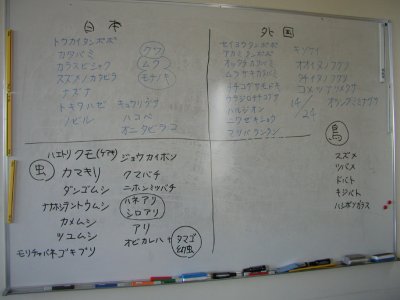 日本
トウカイタンポポ
カタバミ
カラスビシャク
スズメノカタビラ
ナズナ
トキワハゼ キュウリグサ
ノビル ハコベ
オニタビラコ
クワ
ムク
モチノキ
外国
セイヨウタンポポ キソケイ
アカミタンポポ オオイヌノフグリ
オッタチカタバミ タチイヌノフグリ
ムラサキカタバミ コメツブツメクサ
チチコグサモドキ
ウラジロチチコグサ 14/24 オランダミミナグサ
ハルジオン
ニワゼキショウ
マツバウンラン
虫
ハエトリクモ(ケアキ) ジョウカイボン
カマキリ クマバチ
ダンゴムシ ニホンミツバチ
ナナホシテントウムシ ハネアリ
カメムシ シロアリ
ツユムシ アリ
モリチャバネゴキブリ オビカレハ
タマゴ
幼虫
鳥
スズメ
ツバメ
ドバト
キジバト
ハシボソガラス